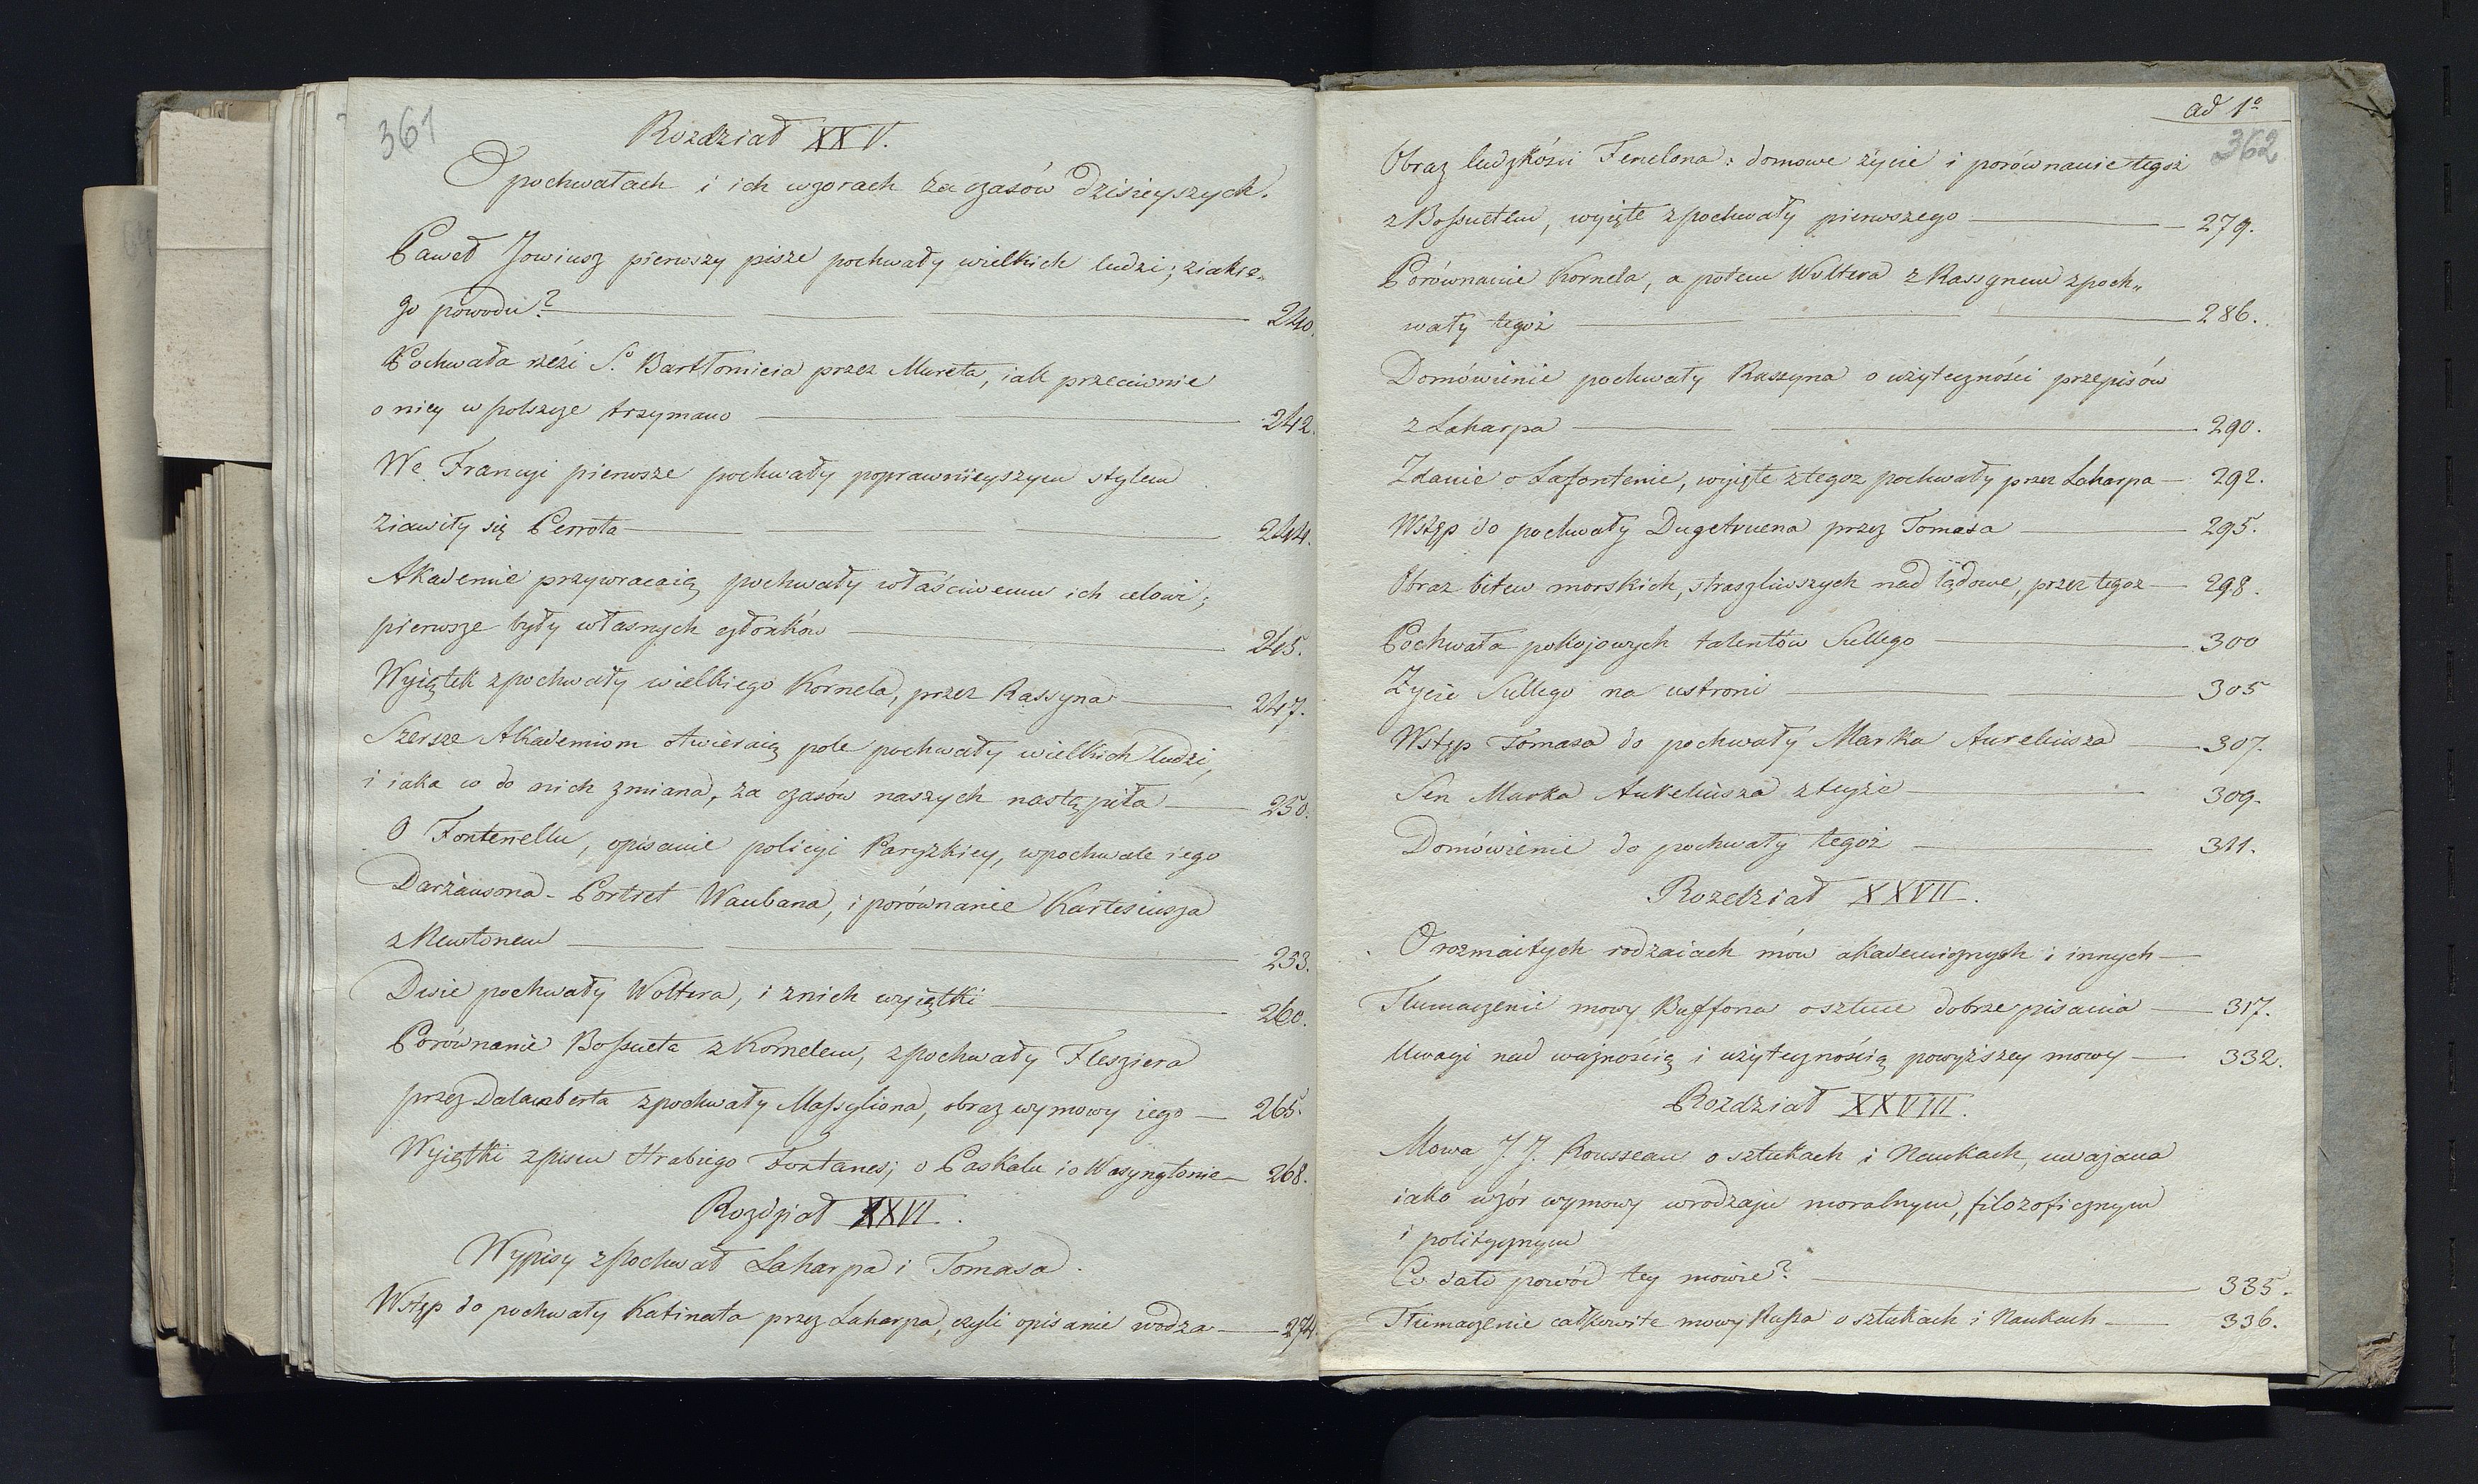 361
Rozdział XXV.
O pochwałach i ich wzorach za czasów dzisieyszych.
Paweł Jowiusz pierwszy pisze pochwały wielkich ludzi; z iakie„
go powodu? 240.
Pochwała rzézi S. Bartłomieia przez Mureta, iak przeciwnie
o niey w polszcze trzymano 242.
We Francyi pierwsze pochwały poprawnieyszym stylem
ziawiły się Perrota 244.
Akademie przywracaią pochwały właściwemu ich celowi;
pierwsze były własnych członków 245.
Wyiątek z pochwały wielkiego Kornela, przez Rassyna 247.
Szersze Akademiom otwieraią pole pochwały wielkich ludzi,
i iaka w do nich zmiana, za czasów naszych nastąpiła 250.
O Fontenellu, opisanie policyi Paryzkiey, w pochwale iego
Darżansona - Portret Waubana, i porównanie Kartesiusza
z Newtonem 253.
Dwie pochwały Woltera, i z nich wyiątki 260.
Porównanie Bossueta z Kornelem, z pochwały Flesziera
przez Dalamberta z pochwały Massyliona, obraz wymowy iego 265.
Wyiątki z pism Hrabiego Fontanes; o Paskalu i o Wasyngtonie 268.
Rozdział XXVI.
Wypisy z pochwał Laharpa i Tomasa.
Wstęp do pochwały Katinata przez Laharpa, czyli opisanie wodza 274.
ad 1º
362
Obraz ludzkości Fenelona: domowe życie i porównanie tegoż
z Bossuetem, wyięte z pochwały pierwszego 279.
Porównanie Kornela, a potem Woltera z Rassynem z poch„
wały tegoż 286.
Domówienie pochwały Rassyna o użyteczności przepisów
z Laharpa 290.
Zdanie o Lafontenie, wyięte z tegoz pochwały przez Laharpa 292.
Wstęp do pochwały Dugetruena przez Tomasa 295.
Obraz bitew morskich, straszliwszych nad lądowe, przez tegoz 298.
Pochwała pokojowych talentów Sullego 300
Życie Sullego na ustroni 305
Wstęp Tomasa do pochwały Marka Aureliusza 307.
Sen Marka Aureliusza z teyże 309.
Domówienie do pochwały tegoż 311.
Rozdział XXVII.
O rozmaitych rodzaiach mów akademicznych i innych
Tłumaczenie mowy Buffona o sztuce dobrze pisania 317.
Uwagi nad ważnością i użytecznością powyższey mowy 332.
Rozdział XXVIII.
Mowa J. J. Rousseau o sztukach i Naukach, uważana
iako wzór wymowy w rodzaju moralnym, filozoficznym
i politycznym
Co dało powód tey mowie? 335.
Tłumaczenie całkowite mowy Russa o sztukach i Naukach 336.